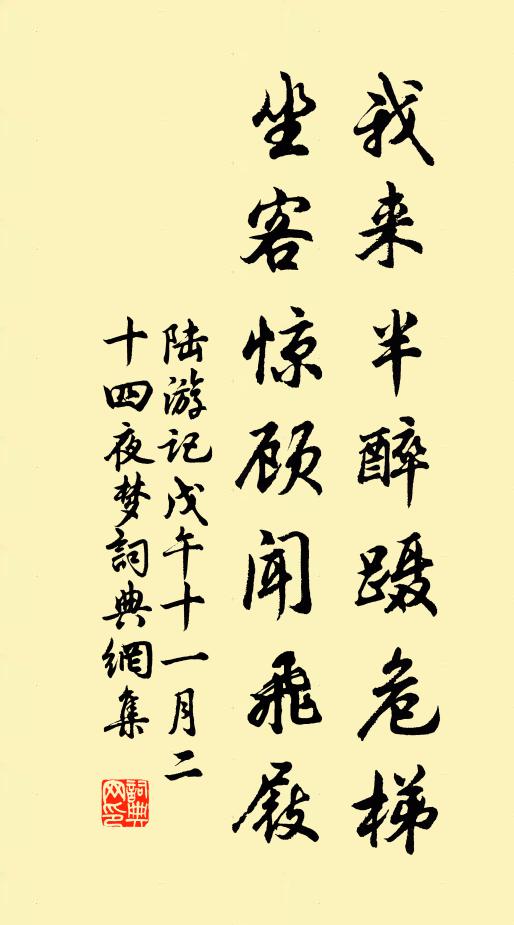 我来半醉蹑危梯
坐客惊顾闻飞屐
陆游记戊午十一月二
十四夜梦詞典網集
詞典网印